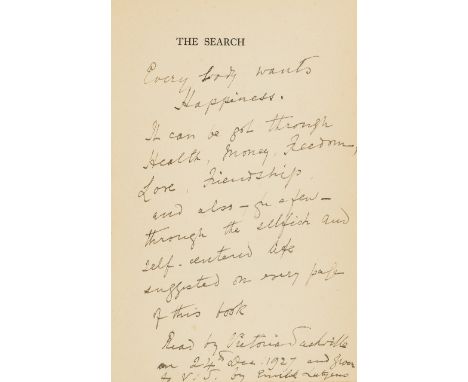 THE SEARCH
Every body wants
Happiness.
It can be got through
Health, Money, Freedom,
Love, Friendship,
and also – for a few –
through the selfish and
self-centered life
suggested on every page
of this book
Read by Victoria Sackville
on 24th Dec. 1927 and given
to V.S. by Emilie Lutyens